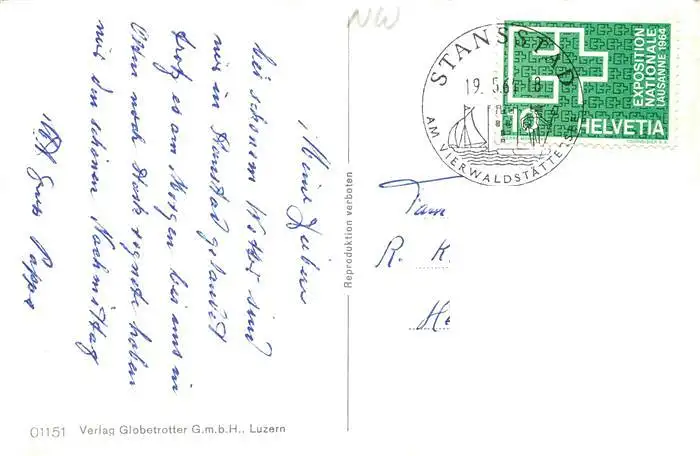 NW
STANSSTAD
19.5.64-18
AM VIERWALDSTÄTTERSEE
EXPOSITION
NATIONALE
LAUSANNE 1964
10
HELVETIA
Meine Lieben
bei schönem Wetter sind
wir in Stansstad gelandet
trotz es am Morgen bis uns in
noch stark regnete haben
wir den schönen Nachmittag
Gruss Pappa
Fam
R. K.
He
Reproduktion verboten
01151 Verlag Globetrotter G.m.b.H., Luzern